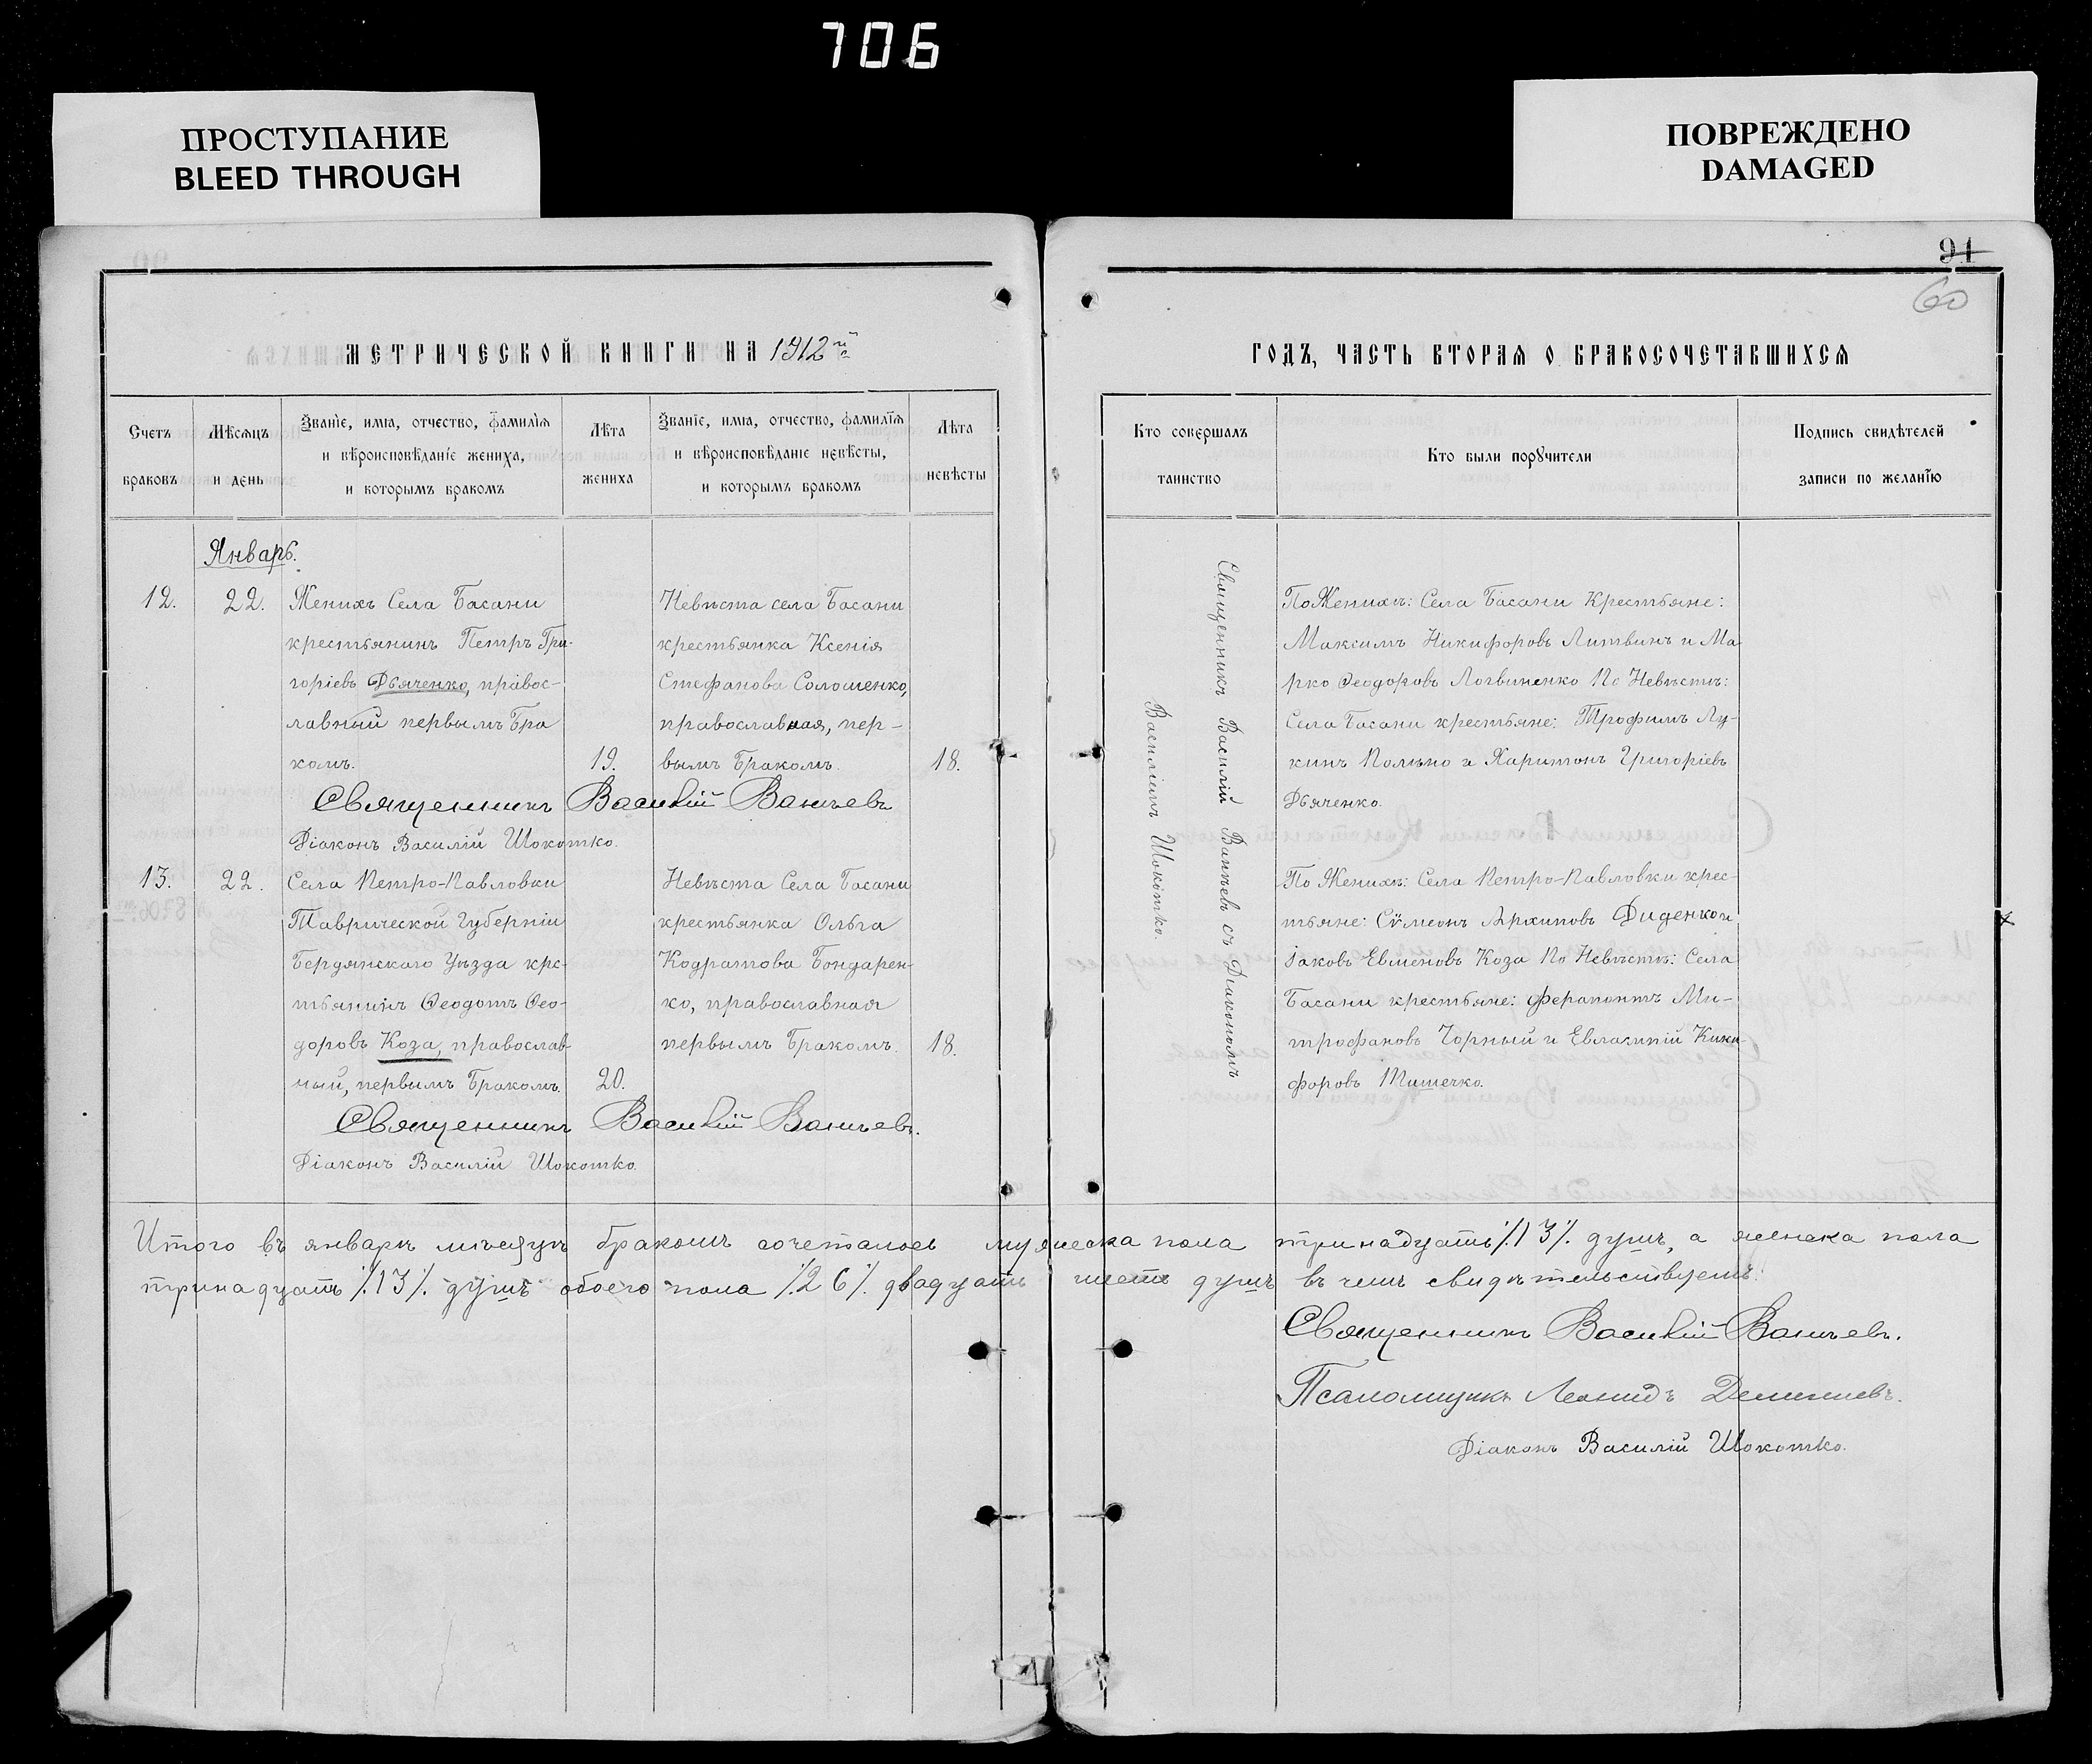 706
ПРОСТУПАНИЕ
BLEED THROUGH
ПОВРЕЖДЕНО
DAMAGED
91
60
МЕТРИЧЕСКОЙ КНИГИ НА 1912й
ГОДЪ, ЧАСТЬ ВТОРАЯ О БРАКОСОЧЕТАВШИХСЯ
Счетъ
браковъ
Мѣсяцъ
и день
Званіе, имя, отчество, фамилія
и вѣроисповѣданіе жениха,
и которымъ бракомъ
Лѣта
жениха
Званіе, имя, отчество, фамилія
и вѣроисповѣданіе невѣсты,
и которымъ бракомъ
Лѣта
невѣсты
Кто совершалъ
таинство
Кто были поручители
Подпись свидѣтелей
записи по желанію
Январь.
12.
22.
Женихъ Села Басани
крестьянинъ Петръ Гри-
горіевъ Дьяченко, правос-
лавный первымъ Бра
комъ.
19.
Невѣста села Басани
крестьянка Ксенія
Стефанова Соломенко,
православная, пер-
вымъ Бракомъ.
18.
Священникъ Василій Ваньевъ
Діаконъ Василій Шокотко.
13.
22.
Села Петро-Павловки
Таврической Губерніи
Бердянскаго Уѣзда кре-
тьянинъ Ѳеодотъ Ѳео-
доровъ Коза, православ-
ный, первымъ Бракомъ.
20.
Невѣста Села Басани
крестьянка Ольга
Кодратова Бондарен-
ко, православная
первымъ Бракомъ.
18.
Священникъ Василій Ваньевъ.
Діаконъ Василій Шокотко.
Священникъ Василій Ваньевъ съ Діакономъ
Василіимъ Шокотко.
По Женихѣ: Села Басани Крестьяне:
Максимъ Никифоровъ Литвинъ и Ма
рко Ѳеодоровъ Логвиненко По Невѣстѣ:
Села Басани крестьяне: Трофимъ Лу-
кинъ и Харитонъ Григоріевъ
Дьяченко.
По Женихѣ: Села Петро-Павловки крес-
тьяне: Сѵмеонъ Архиповъ Диденко и
Іаковъ Евменовъ Коза По Невѣстѣ: Села
Басани крестьяне: Ферапонтъ Ми-
трофановъ Чорный и Евлампій Ники
форовъ Тишечко.
Итого въ январѣ мѣсяцѣ бракомъ сочеталось мужеска пола тринадцать /.13/. душъ, а женска пола
тринадцать /.13/. душъ обоего пола /.26/. двадцать шесть душъ въ чемъ свидѣтельствуемъ:
Священникъ Василій Ваньевъ.
Псаломщикъ Леонидъ
Діаконъ Василій Шокотко.